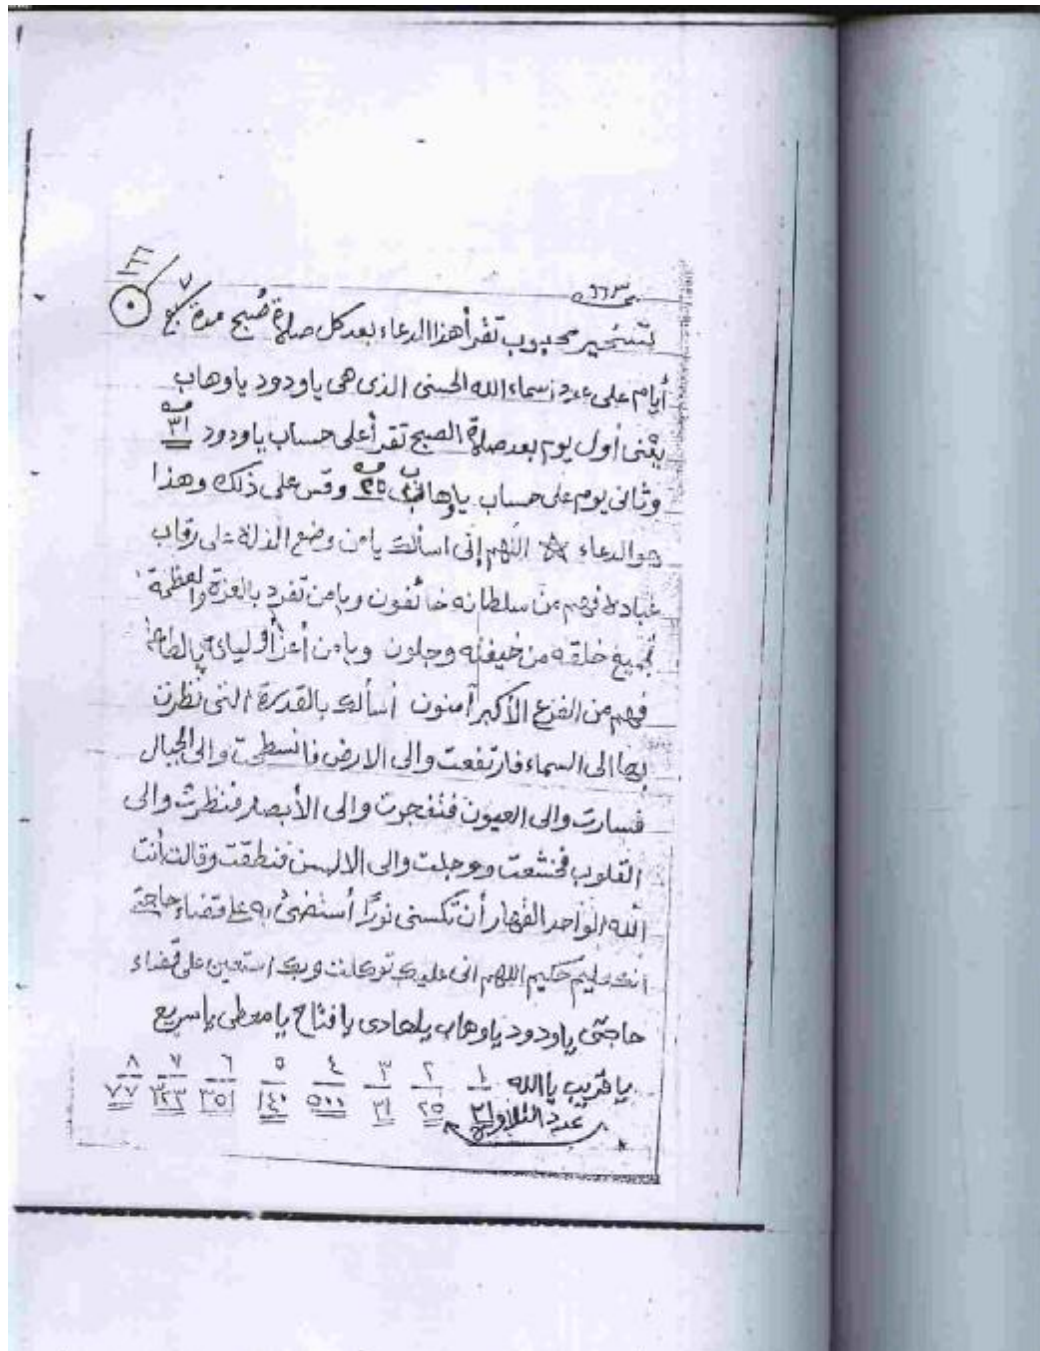 ١٦٦
لتسخير محبوب تقرأ هذا الدعاء بعد كل صلاة صُبح مدة ٧ سبع
أيام على عدد أسماء الله الحسنى الذى هى ياودود ياوهاب
يعنى أول يوم بعد صلاة الصبح تقرأ على حساب ياودود ٣١
وثانى يوم على حساب ٢٥ وقس على ذلك وهذا
هو الدعاء اللهم إنى اسألك يا من وضع الذلة على رقاب
عباده فهم من سلطانه خائفون ويا من تفرد بالعزة والعظمة
فجميع خلقه من خيفته وجلون ويا من أعز أوليائه بالطاعة
فهم من الفزع الأكبر آمنون أسألك بالقدرة التى نظرت
بها الى السماء فارتفعت والى الارض فانسطحت والى الجبال
فسارت والى العيون فتفجرت والى الأبصار فنظرت والى
القلوب فخشعت ووجلت والى الالسن فنطقت وقالت أنت
الله الواحد القهار أن تكسنى نورًا أستضئ به على قضاء حاجتى
انك عليم حكيم اللهم انى عليك توكلت وبك استعين على قضاء
حاجتى ياودود ياوهاب ياهادى يافتاح يامعطى ياسريع
ياقريب ياالله ١ ٢ ٣ ٤ ٥ ٦ ٧ ٨
عدد التلاوة ٣١ ٢٥ ٣١ ٥٠٠ ١٤٠ ٣٥١ ٣٢٣ ٧٧